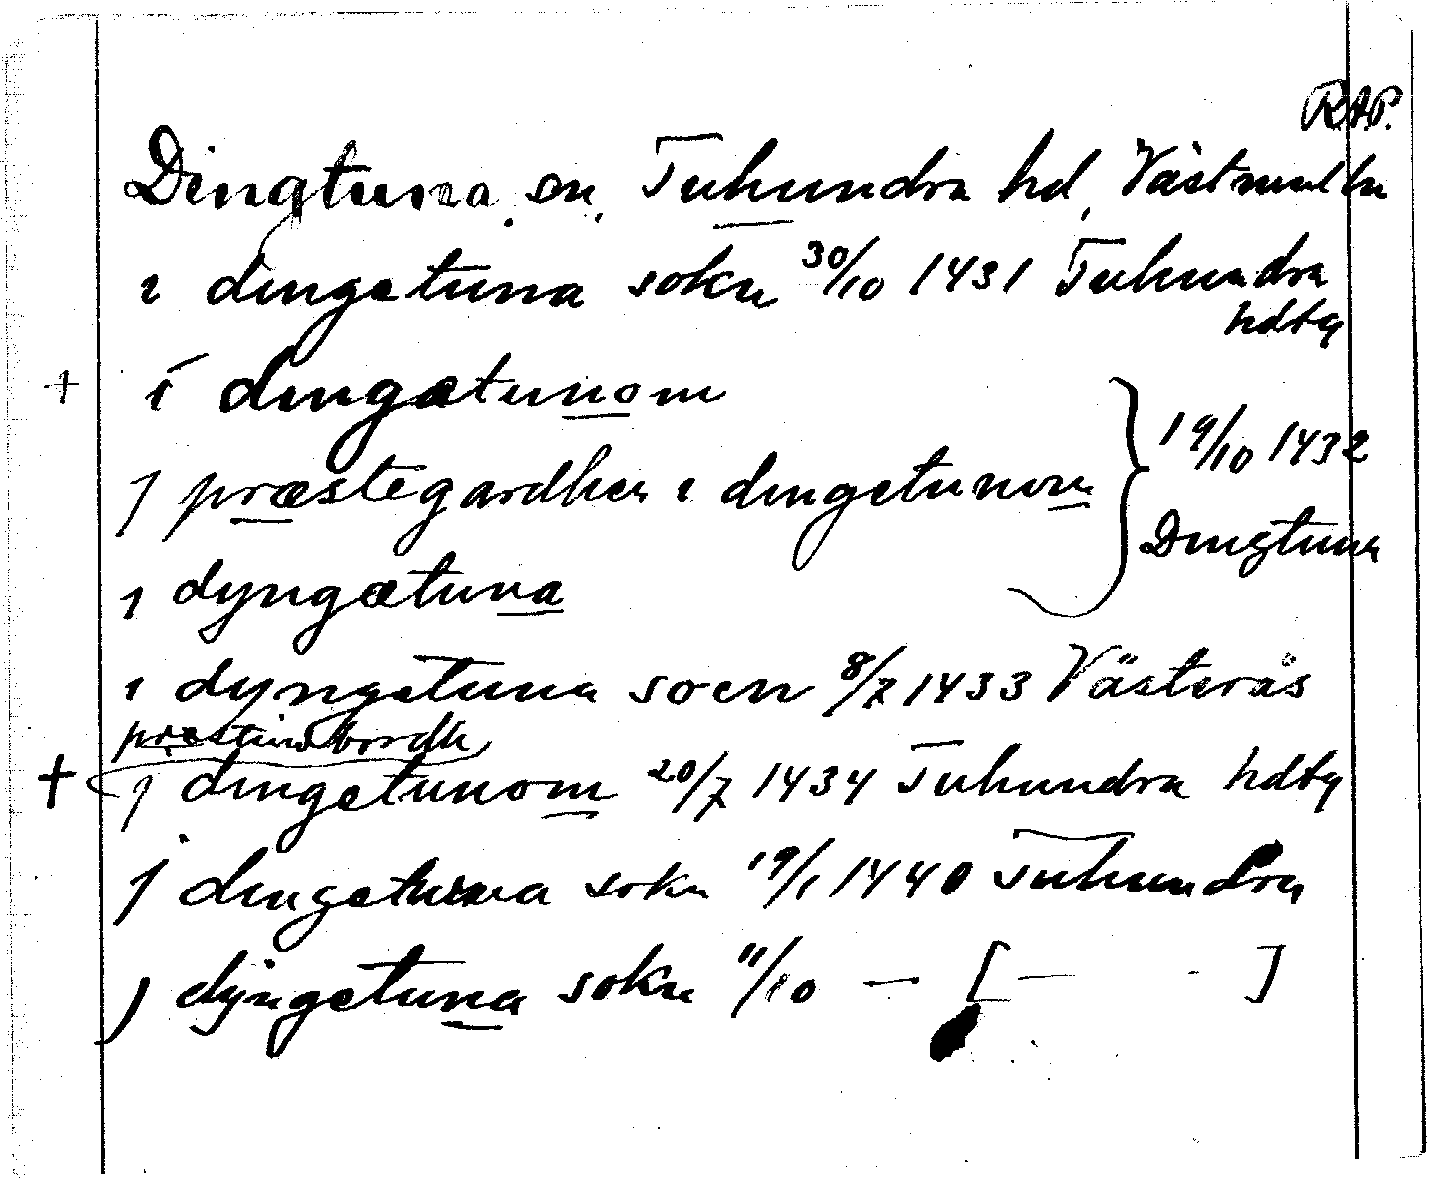 RAP.
Dingtuna sn, Tuhundra hd, Västmanl. län
i dingetuna sokn 30/10 1431 Tuhundra
hdtg
+ i dingætunom
j præstegardhen i dingetunom } 19/10 1432
Dingtuna
j dyngætuna
i dyngetuna socn 8/7 1433 Västerås
+ j dingetunom 20/7 1434 Tuhundra hdtg
j dingetuna sokn 19/1 1440 Tuhundra
j dyngetuna sokn 11/10 — [— - ]